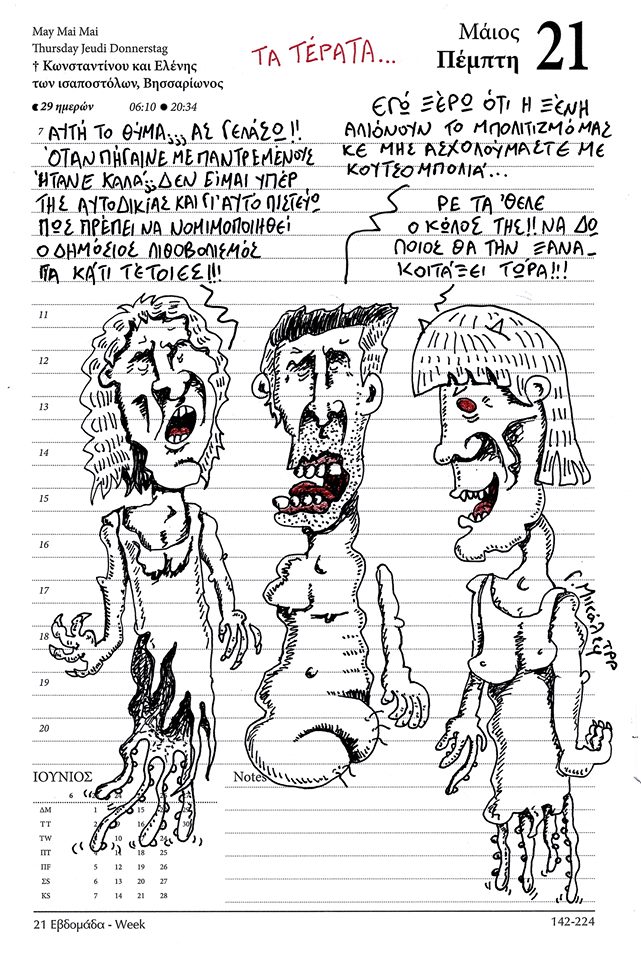 May Mai Mai
Thursday Jeudi Donnerstag
† Κωνσταντίνου και Ελένης
των ισαποστόλων, Βησσαρίωνος
29 ημερών 06:10 ● 20:34
ΤΑ ΤΕΡΑΤΑ...
Μάιος
Πέμπτη
21
7
ΑΥΤΗ ΤΟ ΘΥΜΑ,,, ΑΣ ΓΕΛΑΣΩ!!
ΌΤΑΝ ΠΗΓΑΙΝΕ ΜΕ ΠΑΝΤΡΕΜΕΝΟΥΣ
ΉΤΑΝΕ ΚΑΛΑ;,, ΔΕΝ ΕΙΜΑΙ ΥΠΈΡ
ΤΗΣ ΑΥΤΟΔΙΚΊΑΣ ΚΑΙ ΓΙ'ΑΥΤΟ ΠΙΣΤΕΥΩ
ΠΩΣ ΠΡΈΠΕΙ ΝΑ ΝΟΜΙΜΟΠΟΙΗΘΕΙ
Ο ΔΗΜΌΣΙΟΣ ΛΙΘΟΒΟΛΙΣΜΌΣ
ΓΙΑ ΚΆΤΙ ΤΈΤΟΙΕΣ!!!
ΕΓΏ ΞΈΡΩ ΌΤΙ Η ΞΈΝΗ
ΑΛΙΌΝΟΥΝ ΤΟ ΜΠΟΛΙΤΙΖΜΌ ΜΑΣ
ΚΕ ΜΗΣ ΑΣΧΟΛΟΎΜΑΣΤΕ ΜΕ
ΚΟΥΤΣΟΜΠΟΛΙΆ...
ΡΕ ΤΑ ΉΘΕΛΕ
Ο ΚΏΛΟΣ ΤΗΣ!! ΝΑ ΔΩ
ΠΟΙΟΣ ΘΑ ΤΗΝ ΞΑΝΑ_
ΚΟΙΤΆΞΕΙ ΤΏΡΑ!!!
11
12
13
14
15
16
17
18
19
20
ΙΟΥΝΙΟΣ
Notes
ΔΜ 1
ΤΤ 2 16
TW 10
ΠΤ 11 18 25
ΠF 5 12 19 26
ΣS 6 13 20 27
KS 7 14 21 28
21 Εβδομάδα - Week
142-224